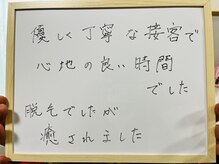 優しく丁寧な接客で
心地の良い時間
でした
脱毛でしたが
癒されました